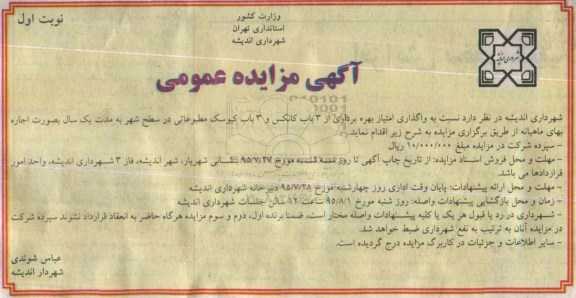 نوبت اول
وزارت کشور
استانداری تهران
شهرداری اندیشه
آگهی مزایده عمومی
شهرداری اندیشه در نظر دارد نسبت به واگذاری امتیاز بهره برداری از ۳ باب کانکس و ۳ باب کیوسک مطبوعاتی در سطح شهر به مدت یک سال بصورت اجاره
بهای ماهیانه از طریق برگزاری مزایده به شرح زیر اقدام نماید.
- سپرده شرکت در مزایده مبلغ ۱۰/۰۰۰/۰۰۰ ریال
- مهلت و محل فروش اسناد مزایده: از تاریخ چاپ آگهی تا روز سه شنبه مورخ ۹۵/۷/۲۷ بنشانی شهریار، شهر اندیشه، فاز ۳ شهرداری اندیشه، واحد امور
قراردادها می باشد.
- مهلت و محل ارائه پیشنهادات: پایان وقت اداری روز چهارشنبه مورخ ۹۵/۷/۲۸ دبیرخانه شهرداری اندیشه
- زمان و محل بازگشایی پیشنهادات واصله: روز شنبه مورخ ۹۵/۸/۱ ساعت ۱۲ سالن جلسات شهرداری اندیشه
- شهرداری در رد یا قبول هر یک یا کلیه پیشنهادات واصله مختار است، ضمنا برنده اول، دوم و سوم مزایده هرگاه حاضر به انعقاد قرارداد نشوند سپرده شرکت
در مزایده آنان به ترتیب به نفع شهرداری ضبط خواهد شد.
- سایر اطلاعات و جزئیات در کاربرگ مزایده درج گردیده است.
عباس شوندی
شهردار اندیشه